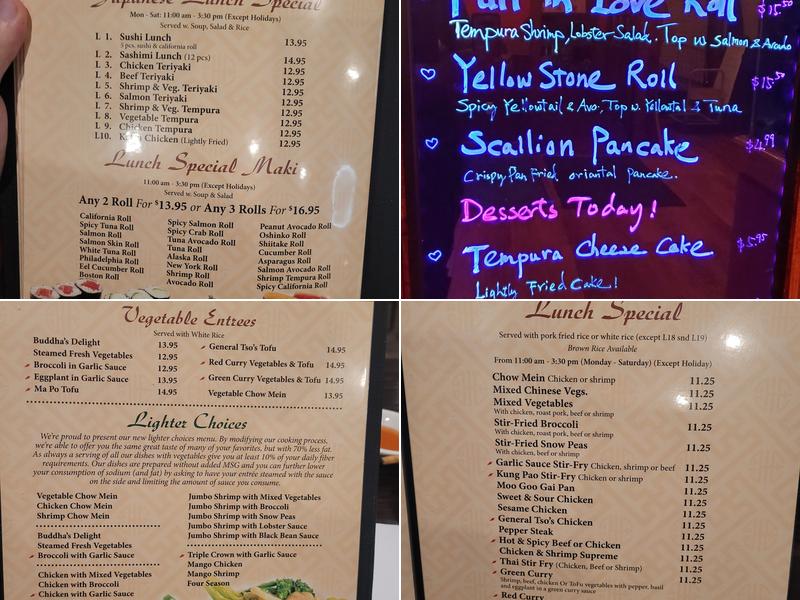 Japanese Lunch Special
Mon - Sat: 11:00 am - 3:30 pm (Except Holidays)
Served w. Soup, Salad & Rice
L 1. Sushi Lunch 13.95
5 pcs. sushi & california roll
L 2. Sashimi Lunch (12 pcs) 14.95
L 3. Chicken Teriyaki 12.95
L 4. Beef Teriyaki 12.95
L 5. Shrimp & Veg. Teriyaki 12.95
L 6. Salmon Teriyaki 12.95
L 7. Shrimp & Veg. Tempura 12.95
L 8. Vegetable Tempura 12.95
L 9. Chicken Tempura 12.95
L10. Chicken (Lightly Fried) 12.95
Lunch Special Maki
11:00 am - 3:30 pm (Except Holidays)
Served w. Soup & Salad
Any 2 Roll For $13.95 or Any 3 Rolls For $16.95
California Roll
Spicy Tuna Roll
Salmon Roll
Salmon Skin Roll
White Tuna Roll
Philadelphia Roll
Eel Cucumber Roll
Boston Roll
Spicy Salmon Roll
Spicy Crab Roll
Tuna Avocado Roll
Tuna Roll
Alaska Roll
New York Roll
Shrimp Roll
Avocado Roll
Peanut Avocado Roll
Oshinko Roll
Shiitake Roll
Cucumber Roll
Asparagus Roll
Salmon Avocado Roll
Shrimp Tempura Roll
Spicy California Roll
Fall in Love Roll $15.50
Tempura Shrimp, Lobster Salad. Top w Salmon & Avocado
Yellow Stone Roll $15.50
Spicy Yellowtail & Avo, Top w. Yellowtail & Tuna
Scallion Pancake $4.99
Crispy Pan Fried oriental Pancake.
Desserts Today!
Tempura Cheese Cake $5.95
Lightly Fried Cake!
Vegetable Entrees
Served with White Rice
Buddha's Delight 13.95
Steamed Fresh Vegetables 12.95
Broccoli in Garlic Sauce 12.95
Eggplant in Garlic Sauce 13.95
Ma Po Tofu 14.95
General Tso's Tofu 14.95
Red Curry Vegetables & Tofu 14.95
Green Curry Vegetables & Tofu 14.95
Vegetable Chow Mein 13.95
Lighter Choices
We're proud to present our new lighter choices menu. By modifying our cooking process,
we're able to offer you the same great taste of many of your favorites, but with 70% less fat.
As always a serving of all our dishes with vegetables give you at least 10% of your daily fiber
requirements. Our dishes are prepared without added MSG and you can further lower
your consumption of sodium (and fat) by asking to have your entrée steamed with the sauce
on the side and limiting the amount of sauce you consume.
Vegetable Chow Mein
Chicken Chow Mein
Shrimp Chow Mein
Buddha's Delight
Steamed Fresh Vegetables
Broccoli with Garlic Sauce
Chicken with Mixed Vegetables
Chicken with Broccoli
Chicken with Garlic Sauce
Jumbo Shrimp with Mixed Vegetables
Jumbo Shrimp with Broccoli
Jumbo Shrimp with Snow Peas
Jumbo Shrimp with Lobster Sauce
Jumbo Shrimp with Black Bean Sauce
Triple Crown with Garlic Sauce
Mango Chicken
Mango Shrimp
Four Season
Lunch Special
Served with pork fried rice or white rice (except L18 snd L19)
Brown Rice Available
From 11:00 am - 3:30 pm (Monday - Saturday) (Except Holiday)
Chow Mein Chicken or shrimp 11.25
Mixed Chinese Vegs. 11.25
Mixed Vegetables 11.25
With chicken, roast pork, beef or shrimp
Stir-Fried Broccoli 11.25
With chicken, roast pork, beef or shrimp
Stir-Fried Snow Peas 11.25
With chicken, beef or shrimp
Garlic Sauce Stir-Fry Chicken, shrimp or beef 11.25
Kung Pao Stir-Fry Chicken or shrimp 11.25
Moo Goo Gai Pan 11.25
Sweet & Sour Chicken 11.25
Sesame Chicken 11.25
General Tso's Chicken 11.25
Pepper Steak 11.25
Hot & Spicy Beef or Chicken 11.25
Chicken & Shrimp Supreme 11.25
Thai Stir Fry (Chicken, Beef or Shrimp) 11.25
Green Curry 11.25
Shrimp, beef, chicken Or ToFu vegetables with pepper, basil
and eggplant in a green curry sauce
Red Curry